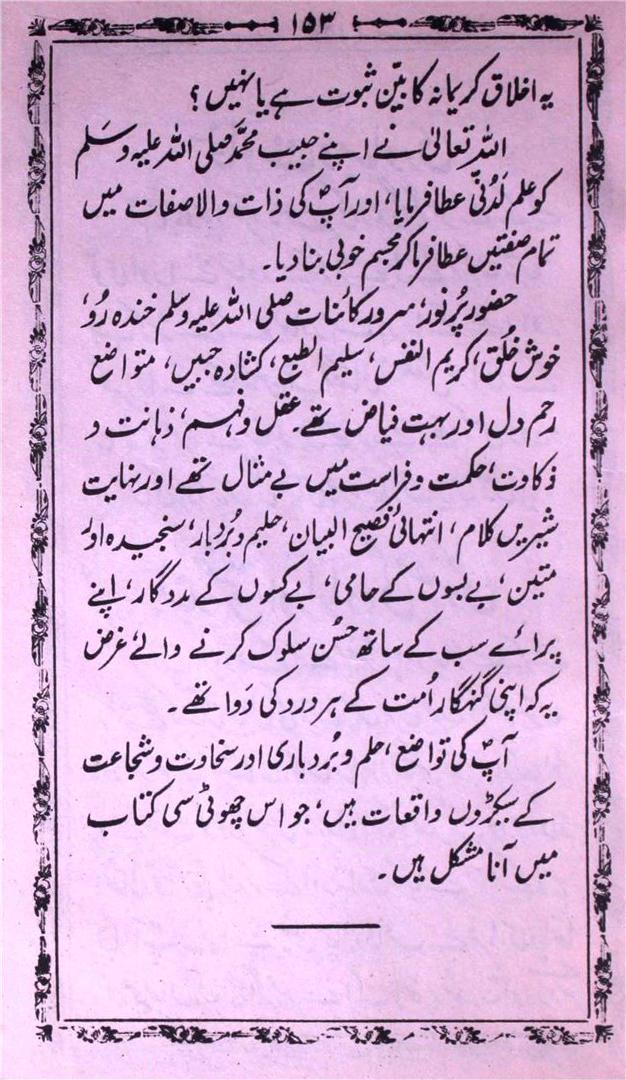 ۱۵۳
یہ اخلاق کریمانہ کا بیّن ثبوت ہے یا نہیں؟
اللہ تعالیٰ نے اپنے حبیب محمّد صلی اللہ علیہ وسَلم
کو علم لَدُنّی عطا فرمایا، اور آپؐ کی ذات والا صفات میں
تمام صفتیں عطا فرما کر مجسم خوبی بنا دیا۔
حضور پُر نور، سرور کائنات صلی اللہ علیہ وسلم خندہ رُو،
خوش خُلق، کریم النفس، سلیم الطبع، کشادہ جبیں، متواضع
رحم دل اور بہت فیاض تھے۔ عقل و فہم، ذہانت و
ذکاوت، حکمت و فراست میں بے مثال تھے اور نہایت
شیریں کلام، انتہائی فصیح البیان، حلیم و بُردبار، سنجیدہ اور
متین، بے بسوں کے حامی، بے کسوں کے مددگار، اپنے
پرائے سب کے ساتھ حسُن سلوک کرنے والے، غرض
یہ کہ اپنی گنہگار اُمت کے ہر درد کی دَوا تھے۔
آپؐ کی تواضع، حلم و بُردباری اور سخاوت و شجاعت
کے سیکڑوں واقعات ہیں، جو اس چھوٹی سی کتاب
میں آنا مشکل ہیں۔